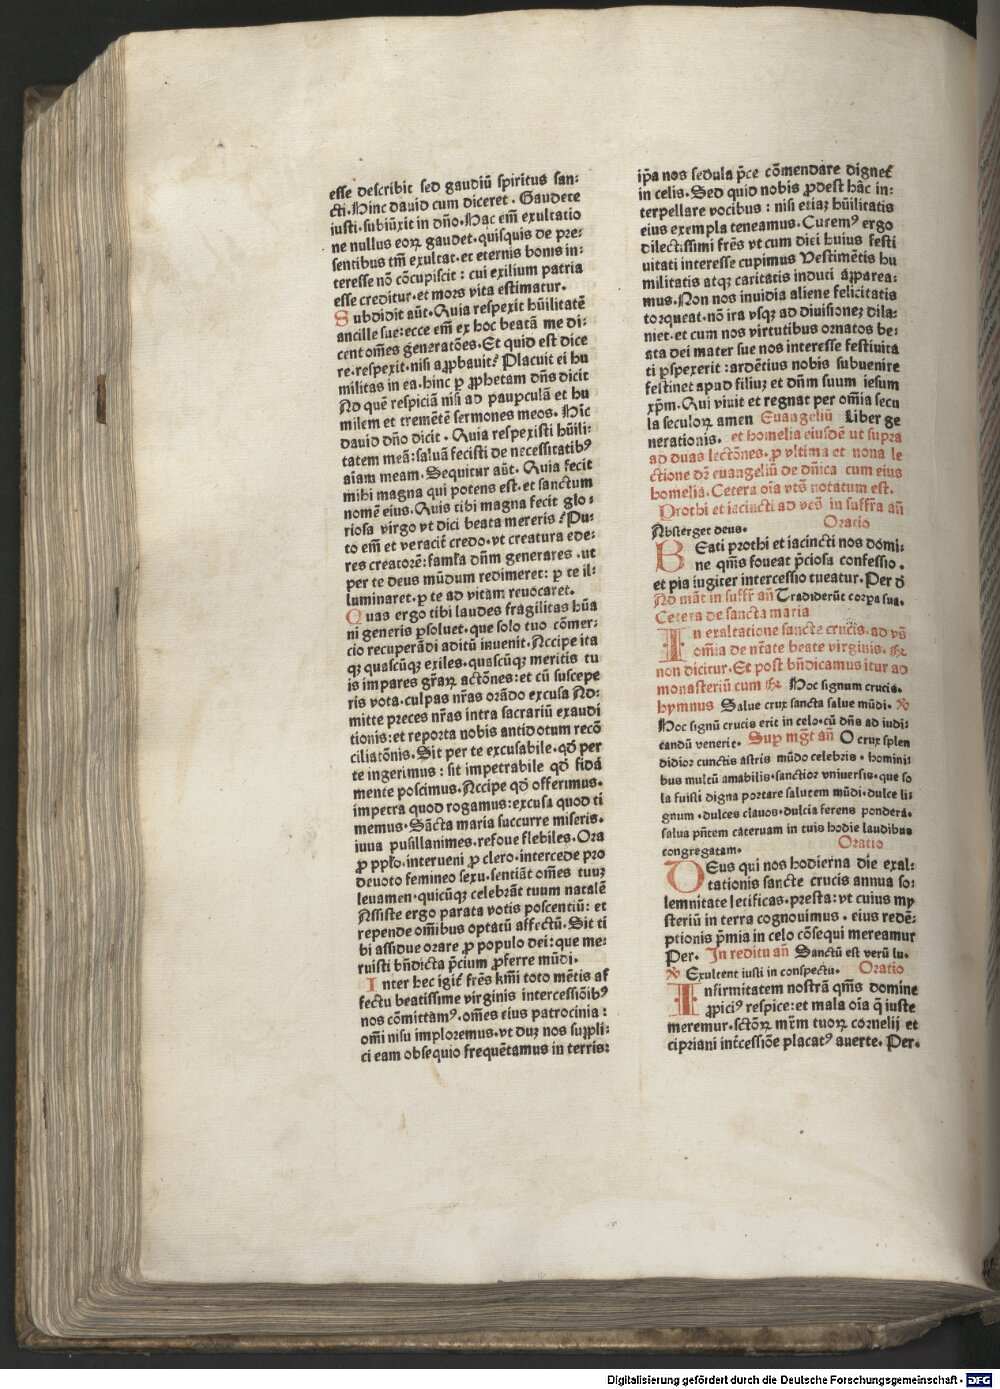 esse describit sed gaudiū spiritus san:
cti. Hinc dauid cum diceret . Gaudete
iusti. subiūxit in dño. Hac em̄ exultatio
ne nullus eoꝝ gaudet. quisquis de pre:
sentibus tm̄ exultat. et eternis bonis in:
teresse nō cōcupiscit : cui exilium patria
esse creditur. et mors vita estimatur.
Subdidit aūt. Quia respexit hūilitatē
ancille sue: ecce em̄ ex hoc beatā me di:
cent om̄es generatōes. Et quid est dice
re. respexit. nisi aꝓbauit? Placuit ei hu
militas in ea. hinc ꝑ ꝓphetam dñs dicit
Ad quē respiciā nisi ad pauꝑculā et hu
milem et tremētē sermones meos. Hīc
dauid dño dicit . Quia respexisti hūili:
tatem meā: saluā fecisti de necessitatibꝰ
aīam meam. Sequitur aūt. Quia fecit
mihi magna qui potens est. et sanctum
nomē eius. Quis tibi magna fecit glo:
riosa virgo vt dici beata mereris? Pu:
to em̄ et veracit̄ credo. vt creatura ede:
res creatorē: famľa dñm generares . ut
per te deus mūdum redimeret: ꝑ te il:
luminaret. ꝑ te ad vitam reuocaret.
Quas ergo tibi laudes fragilitas hūa
ni generis ꝑsoluet. que solo tuo cōmer:
cio recuperādi aditū inuenit. Accipe ita
qꝫ quascūqꝫ exiles. quascūqꝫ meritis tu
is impares gr̄aꝝ actōnes: et cū suscepe
ris vota. culpas nr̄as orādo excusa Ad:
mitte preces nr̄as intra sacrariū exaudi
tionis: et reporta nobis antidotum recō
ciliatōnis. Sit per te excusabile. qď per
te ingerimus : sit impetrabile qď fida
mente poscimus. Accipe qď offerimus.
impetra quod rogamus: excusa quod ti
memus. Sācta maria succurre miseris.
iuua pusillanimes. refoue flebiles. Ora
ꝓ ppľo. interueni ꝓ clero. intercede pro
deuoto femineo sexu. sentiāt om̄es tuuꝫ
leuamen. quicūqꝫ celebrāt tuum natalē
Assiste ergo parata votis poscentiū: et
repende om̄ibus optatū affectū. Sit ti
bi assidue orare ꝓ populo dei: que me:
ruisti bn̄dicta p̄cium ꝓferre mūdi.
Inter hec igit̄ frēs kmi toto mētis af
fectu beatissime virginis intercessiōibꝰ
nos cōmittamꝰ. om̄es eius patrocinia :
om̄i nisu imploremus. vt duꝫ nos suppli:
ci eam obsequio frequētamus in terris:
ip̄a nos sedula p̄ce cōmendare dignet̄
in celis. Sed quid nobis ꝓdest hāc in:
terpellare vocibus : nisi etiaꝫ hūilitatis
eius exempla teneamus. Curemꝰ ergo
dilectissimi frēs vt cum dici huius festi
uitati interesse cupimus Vestimētis hu
militatis atqꝫ caritatis induti appareа:
mus. Non nos inuidia aliene felicitatis
torqueat. nō ira vsqꝫ ad diuisioneꝫ dila:
niet. et cum nos virtutibus ornatos be:
ata dei mater sue nos interesse festiuita
ti ꝑspexerit : ardētius nobis subuenire
festinet apud filiuꝫ et dñm suum iesum
xp̄m. Qui viuit et regnat per om̄ia secu
la seculoꝝ amen Euangeliū Liber ge
nerationis. et homelia eiusdē ut supra
ad duas lectōnes. ꝓ vltima et nona le
ctione dꝛ euangeliū de dñica cum eius
homelia. Cetera oīa vts̄ notatum est.
Prothi et iacincti ad ves̄ in suffr̄a an̄
Absterget deus. Oratio
Beati prothi et iacincti nos domi:
ne qm̄s foueat p̄ciosa confessio.
et pia iugiter intercessio tueatur. Per d̄
Ad mat̄ in suffr̄ an̄ Tradiderūt corpa sua.
Cetera de sancta maria
In exaltatione sancte crucis. ad vs̄
om̄ia de nr̄ate beate virginis. ℟
non dicitur. Et post bn̄dicamus itur ad
monasteriū cum ℟ Hoc signum crucis.
hymnus Salue crux sancta salue mūdi. ℣
Hoc signū crucis erit in celo. cū dñs ad iudi:
candū venerit. Sup mg̅t an̄ O crux splen
didior cunctis astris mūdo celebris . homini:
bus multū amabilis. sanctior vniuersis. que so
la fuisti digna portare talentem mūdi. dulce li:
gnum . dulces clauos. dulcia ferens pondera.
salua pn̄tem cateruam in tuis hodie laudibus
congregatam. Oratio
Deus qui nos hodierna die exal:
tationis sancte crucis annua so:
lemnitate letificas. presta: vt cuius my
steriū in terra cognouimus . eius redē:
ptionis p̄mia in celo cōsequi mereamur
Per. In reditu an̄ Sanctū est verū lu.
℣ Exultent iusti in conspectu. Oratio
Infirmitatem nostrā qm̄s domine
ꝓpiciꝰ respice: et mala oīa q̄ iuste
meremur. sctōꝝ mr̄m tuoꝝ cornelij et
cipriani int̄cessiōe placatꝰ auerte. Per.
Digitalisierung gefördert durch die Deutsche Forschungsgemeinschaft - DFG